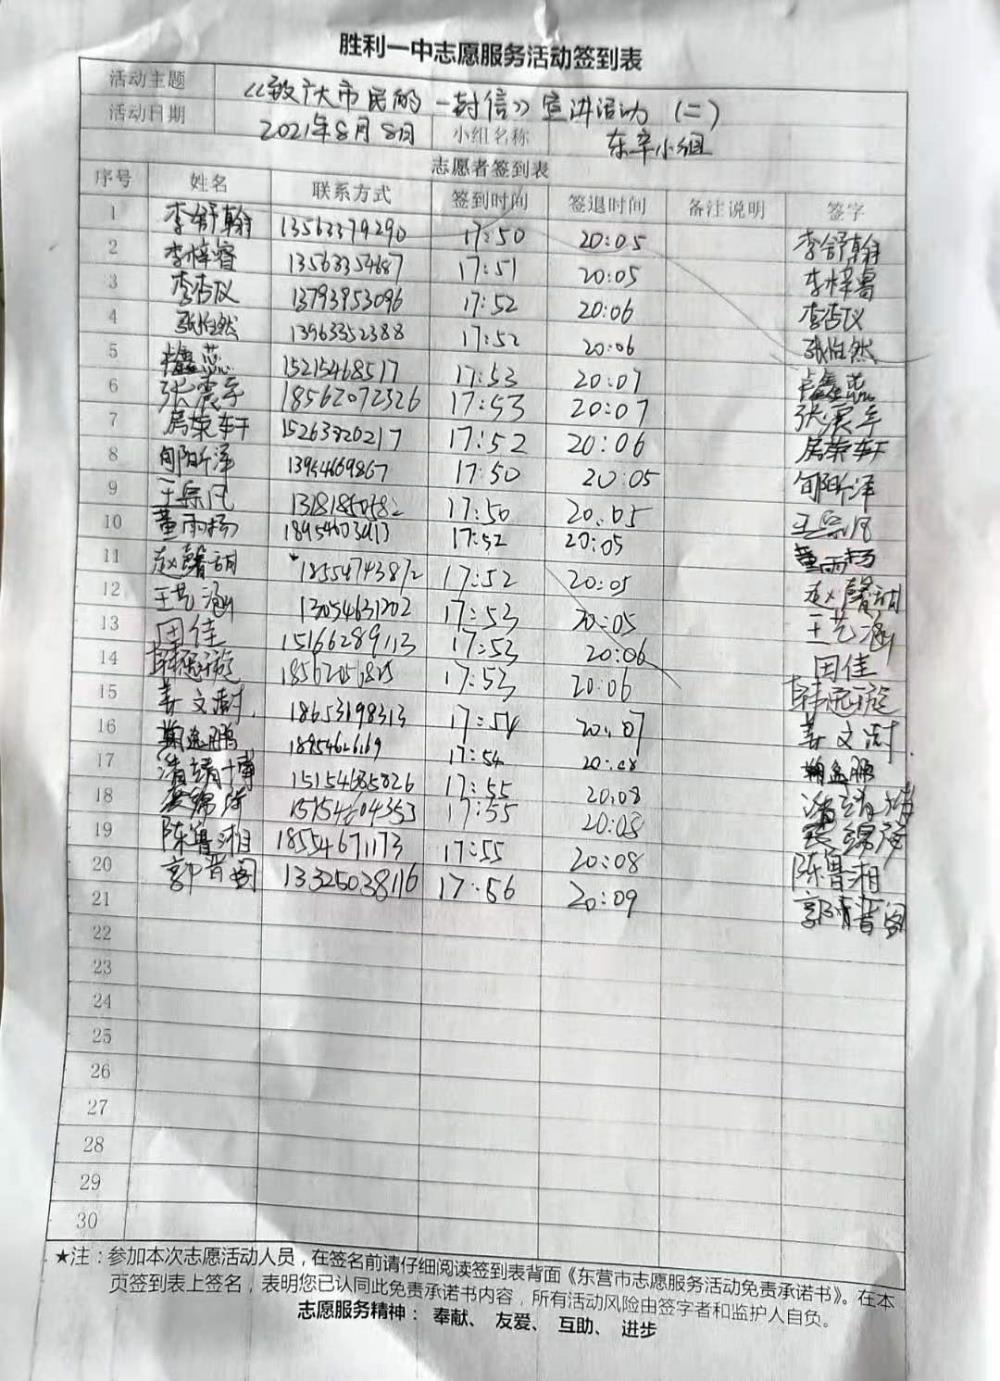 胜利一中志愿服务活动签到表
活动主题 《致广大市民的一封信》宣讲活动（二）
活动日期 2021年8月8日 小组名称 东辛小组
志愿者签到表
序号 姓名 联系方式 签到时间 签退时间 备注说明 签字
1 李舒翰 13563379290 17:50 20:05 李舒翰
2 李梓睿 13568354687 17:51 20:05 李梓睿
3 李杏仪 13793953096 17:52 20:06 李杏仪
4 张怡然 13963352388 17:52 20:06 张怡然
5 15215468517 17:53 20:07
6 张震宇 18562072326 17:53 20:07 张震宇
7 房荣轩 15263820217 17:52 20:06 房荣轩
8 13954669867 17:50 20:05
9 王宗凡 17:50 20:05 王宗凡
10 董雨杨 17:52 20:05 董雨杨
11 赵馨玥 18554743872 17:52 20:05 赵馨玥
12 王艺涵 13054631202 17:53 20:05 王艺涵
13 田佳 15166289113 17:53 20:06 田佳
14 17:53 20:06
15 姜文澍 18653198313 17:54 20:07 姜文澍
16 17:54 20:08
17 15154685826 17:55 20:08
18 15154604353 17:55 20:08
19 陈鲁湘 18554671173 17:55 20:08 陈鲁湘
20 13325038116 17:56 20:09
21
22
23
24
25
26
27
28
29
30
★注：参加本次志愿活动人员，在签名前请仔细阅读签到表背面《东营市志愿服务活动免责承诺书》。在本
页签到表上签名，表明您已认同此免责承诺书内容，所有活动风险由签字者和监护人自负。
志愿服务精神：奉献、友爱、互助、进步